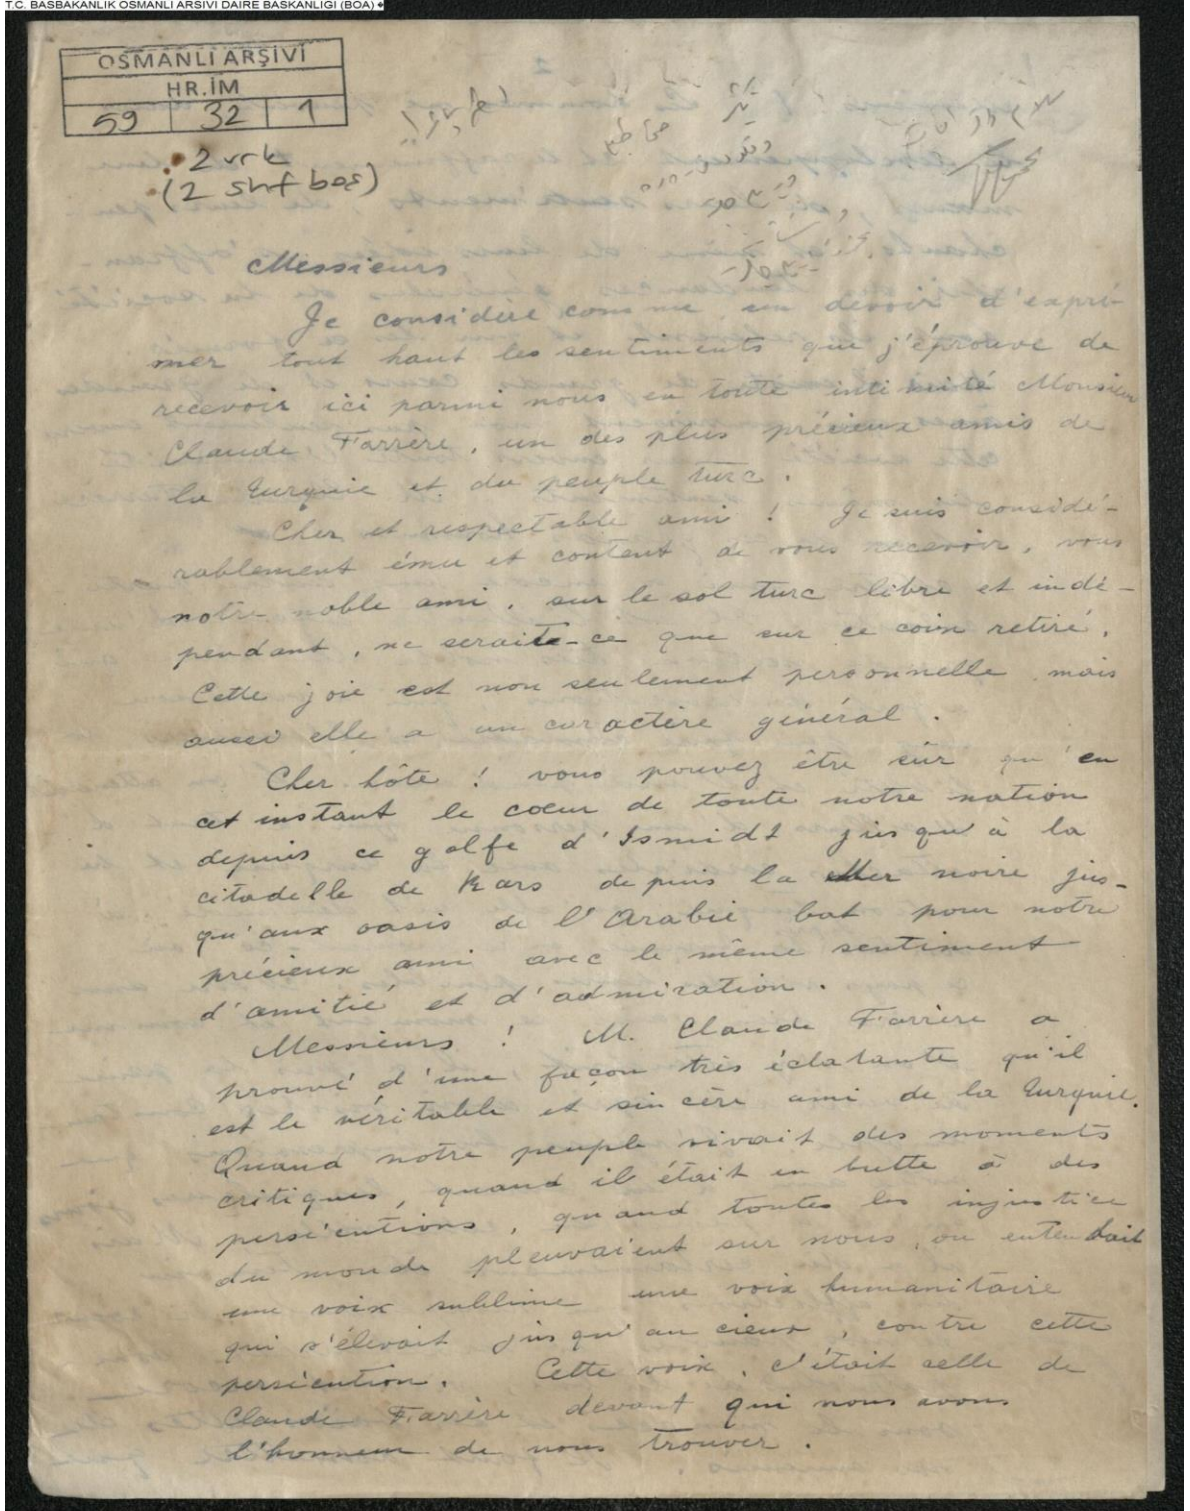 T.C. BASBAKANLIK OSMANLI ARSIVI DAIRE BASKANLIGI (BOA)
OSMANLI ARŞİVİ
HR.İM
59 32 1
2 vrk
(2 shf boş)
Messieurs
Je considère comme un devoir d'expri-
mer tout haut les sentiments que j'éprouve de
recevoir ici parmi nous en toute intimité Monsieur
Claude Farrère, un des plus précieux amis de
la Turquie et du peuple turc.
Cher et respectable ami ! Je suis considé-
rablement ému et content de vous recevoir, vous
notre noble ami, sur le sol turc libre et indé-
pendant, ne seraite-ce que sur ce coin retiré.
Cette joie est non seulement personnelle, mais
aussi elle a un caractère général.
Cher hôte ! vous pouvez être sûr qu'en
cet instant le coeur de toute notre nation
depuis ce golfe d'Ismidt jusqu'à la
citadelle de Kars depuis la Mer noire jus-
qu'aux oasis de l'Arabie bat pour notre
précieux ami avec le même sentiment
d'amitié et d'admiration.
Messieurs ! M. Claude Farrère a
prouvé d'une façon très éclatante qu'il
est le véritable et sincère ami de la Turquie.
Quand notre peuple vivait des moments
critiques, quand il était en butte à des
persécutions, quand toutes les injustice
du monde pleuvaient sur nous, on entendait
une voix sublime une voix humanitaire
qui s'élevait jusqu'au cieux, contre cette
persécution. Cette voix, c'était celle de
Claude Farrère devant qui nous avons
l'honneur de nous trouver.